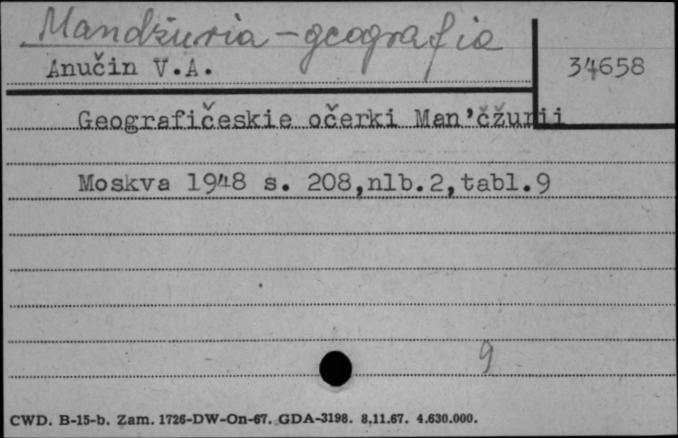 Mandżuria - geografia
Anučin V.A.
34658
Geografičeskie očerki Man'čžurii
Moskva 1948 s. 208,nlb.2,tabl.9
9
CWD. B-15-b. Zam. 1726-DW-On-67. GDA-3198. 8.11.67. 4.630.000.